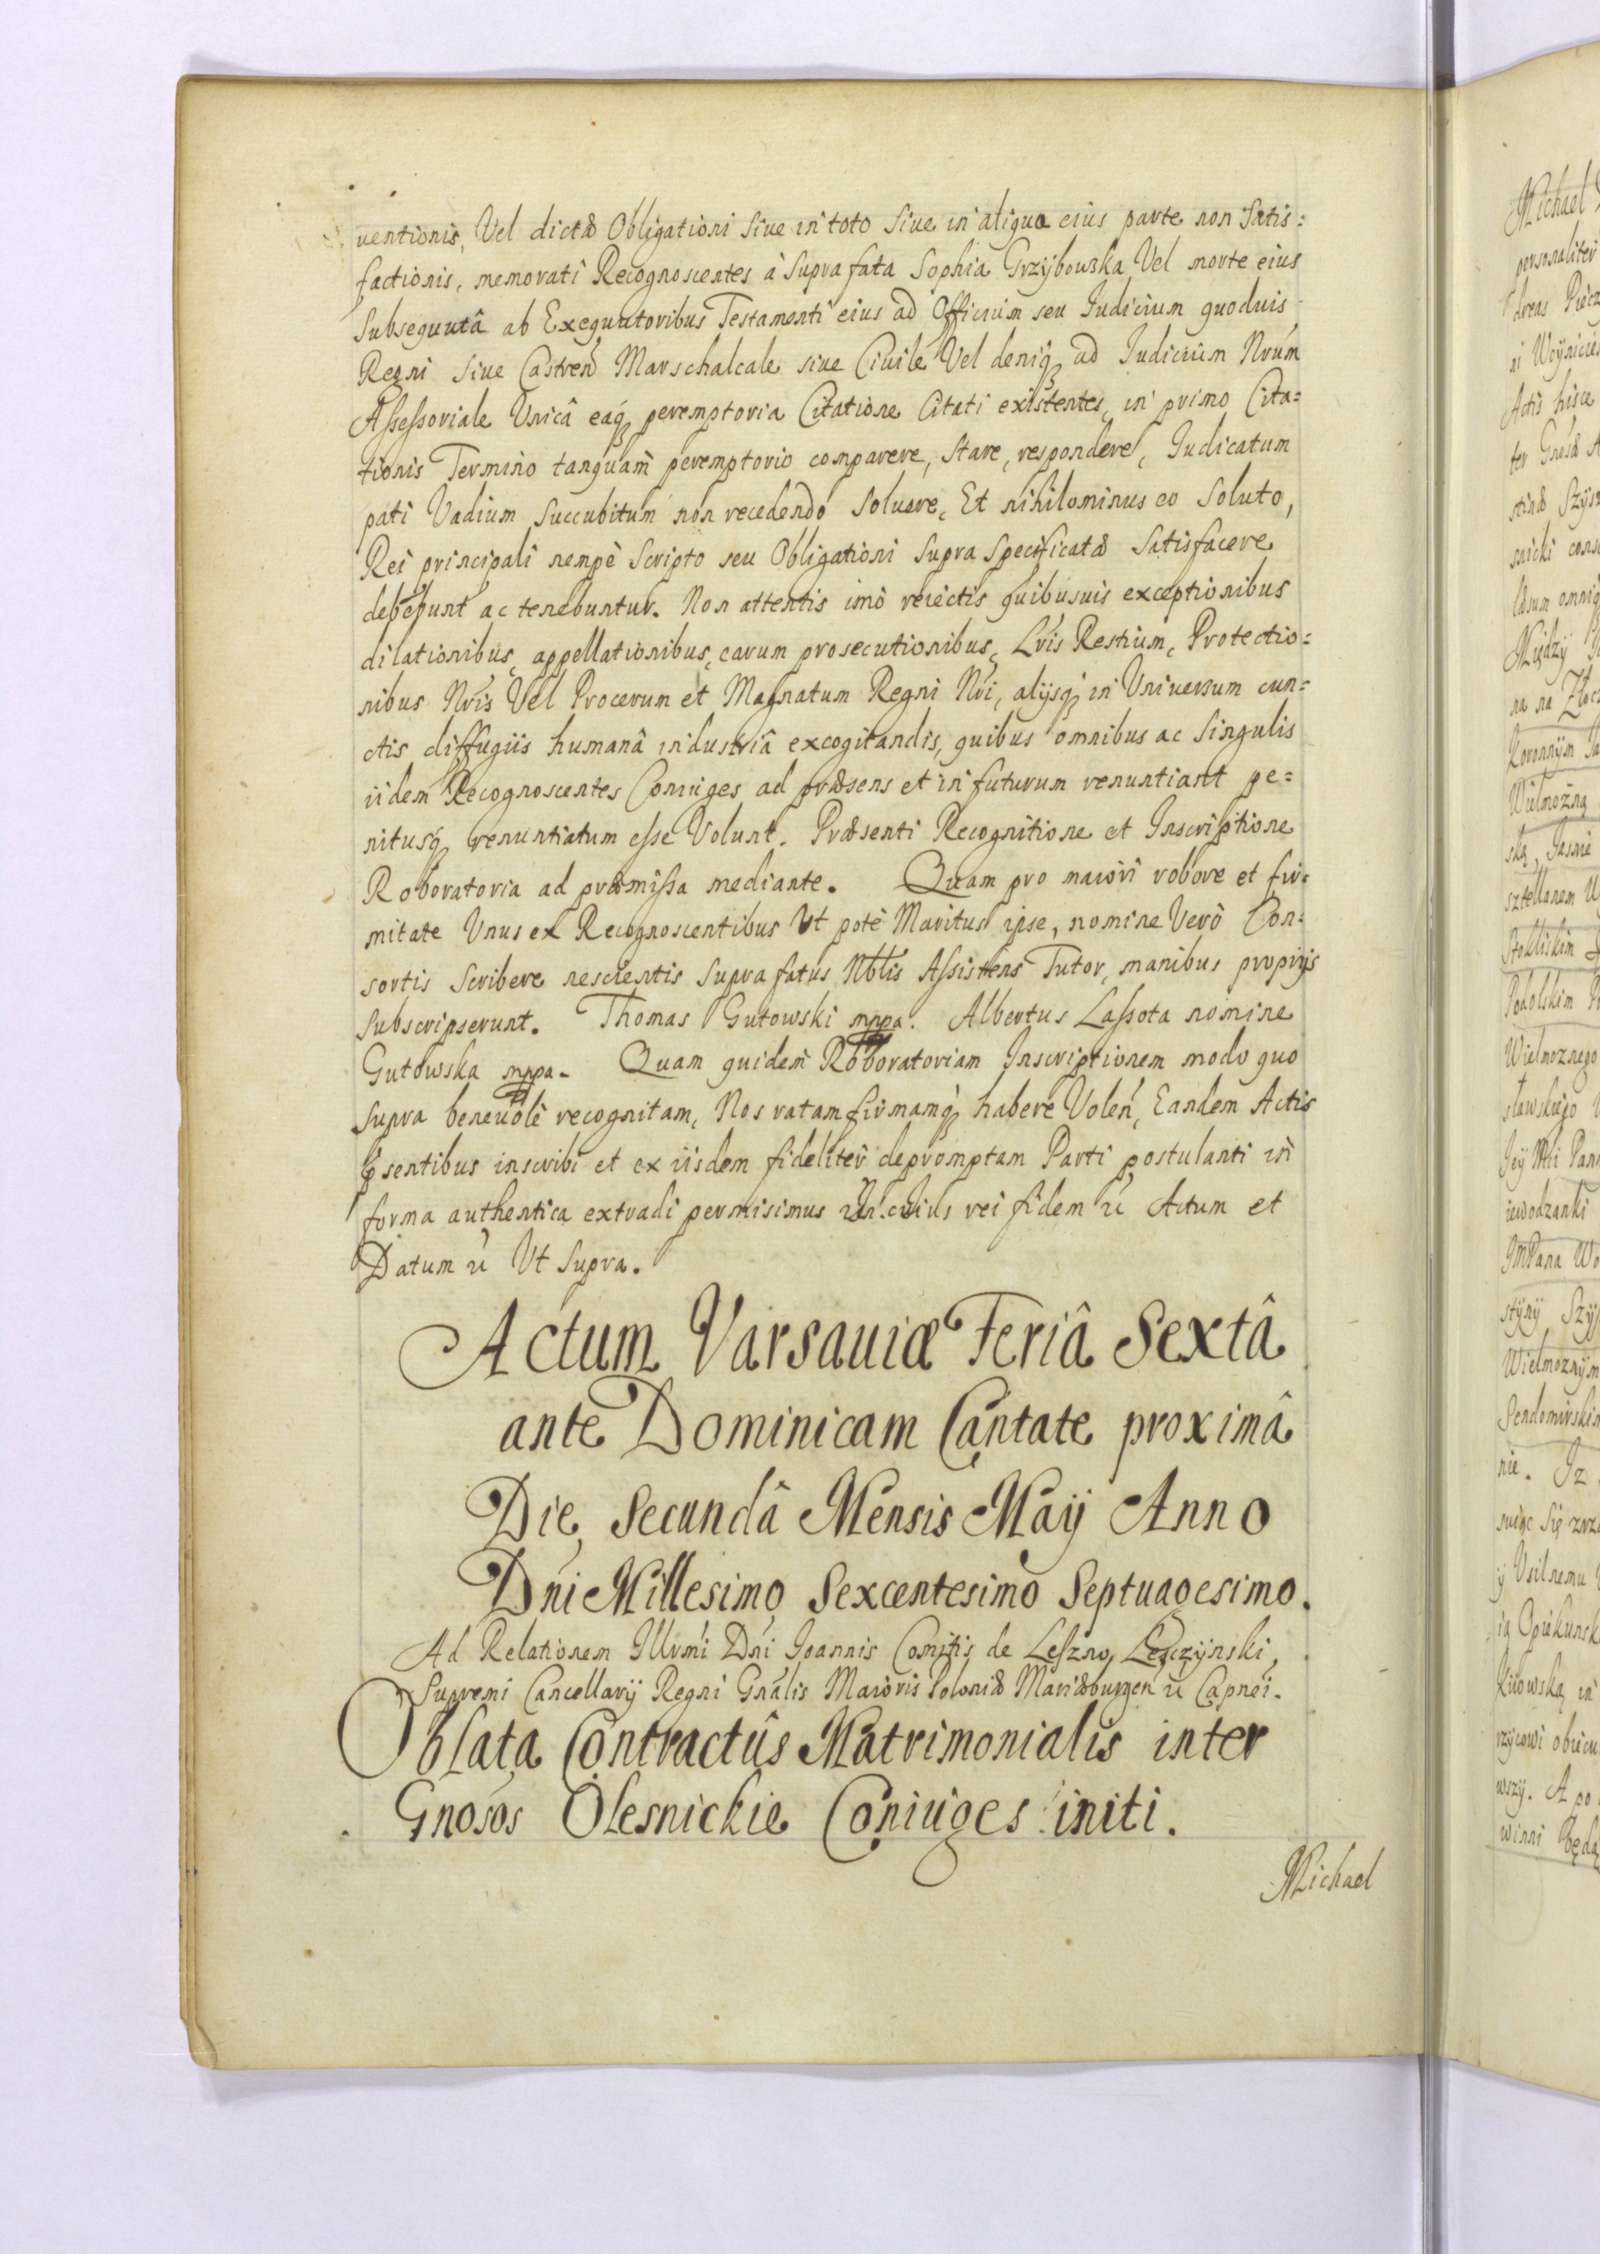 uentionis, Vel dictæ Obligationi siue in toto siue in aliqua eius parte non Satis=
factionis, memorati Recognoscentes à supra fata Sophia Grzÿbowska Vel morte eius
Subsequutâ ab Exequutoribus Testamenti eius ad Officium seu Iudicium quoduis
Regni siue Castren Marschalcale siue Ciuile Vel deniq, ad Iudicium Nrum
Assessoriale Vnicâ eaq, peremptoria Citatione Citati existentes, in primo Cita=
tionis Termino tanquam peremptorio comparere, stare, respondere, Iudicatum
pati Vadium succubitum non recedendo soluere, Et nihilominus eo soluto,
Rei principali nempè scripto seu Obligationi supra specificatæ satisfacere
debebunt ac tenebuntur. Non attentis imò reiectis quibusuis exceptionibus
dilationibus, appellationibus, earum prosecutionibus, Lris Restium, Protectio=
nibus Nris Vel Procerum et Magnatum Regni Nri, alijsq, in Vniuersum cun=
ctis diffugiis humanâ industriâ excogitandis, quibus omnibus ac singulis
iidem Recognoscentes Coniuges ad præsens et in futurum renuntiant pe=
nitusq, renuntiatum esse Volunt. Præsenti Recognitione et Inscriptione
Roboratoria ad præmissa mediante. Quam pro maiori robore et fir=
mitate Vnus ex Recognoscentibus Vt potè Maritus ipse, nomine Verò Con=
sortis scribere nescientis supra fatus Nblis Assistens Tutor, manibus proprijs
subscripserunt. Thomas Gutowski mppa. Albertus Lassota nomine
Gutowska mppa. Quam quidem Roboratoriam Inscriptionem modo quo
supra beneuolè recognitam, Nos ratam firmamq, habere Volen, Eandem Actis
Psentibus inscribi et ex iisdem fideliter depromptam Parti postulanti in
forma authentica extradi permisimus In cuius rei fidem u Actum et
Datum u Vt supra.
Actum Varsauiæ Feriâ Sextâ
ante Dominicam Cantate proximâ
Die Secundâ Mensis Maÿ Anno
Dni Millesimo Sexcentesimo Septuagesimo.
Ad Relationem Illrmi Dni Ioannis Comitis de Leszno Leszczÿnski,
Supremi Cancellarÿ Regni Gnalis Maioris Poloniæ Mariæburgen u Capnei.
Oblata Contractûs Matrimonialis inter
Gnosos Olesnickie Coniuges initi.
Michael